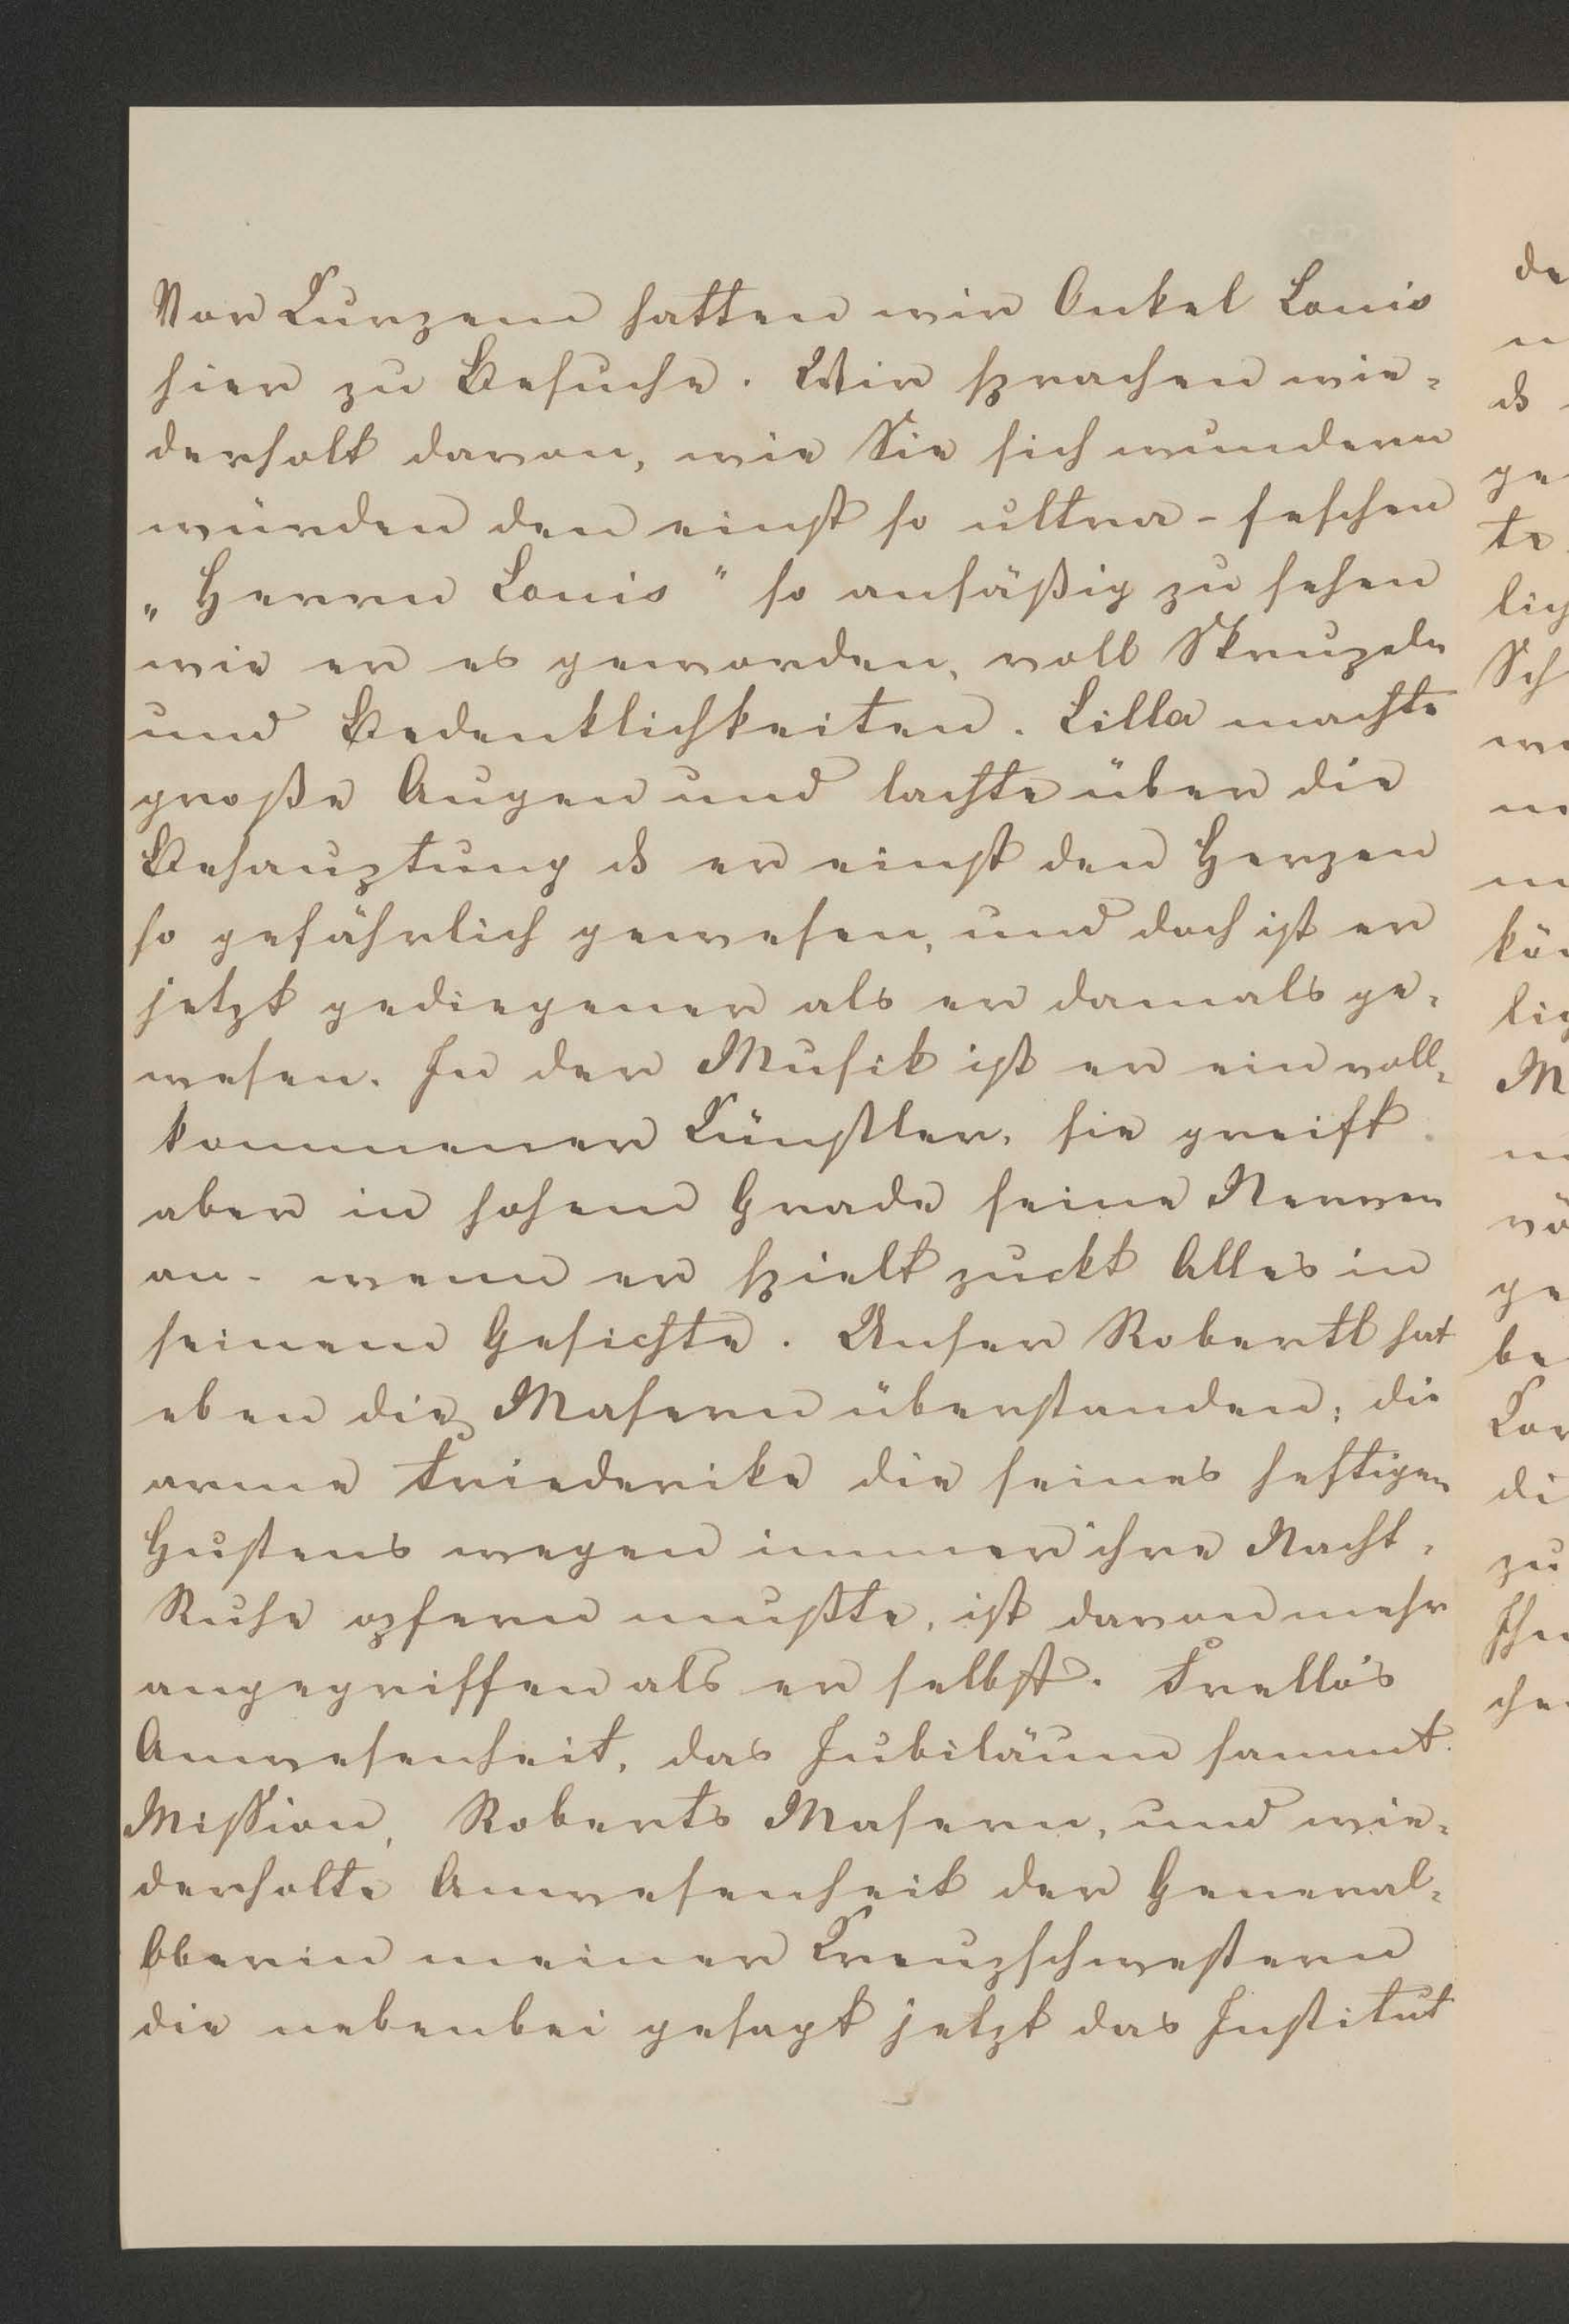 Vor Kurzem hatten wir Onkel Louis
hier zu Besuche. Wir sprachen wie-
derholt davon, wie Sie sich wundern
würden den einst so ultra-feschen
„Herrn Louis" so ansäßig zu sehen
wie er es geworden, voll Skrupeln
und Bedenklichkeiten. Lilla machte
große Augen und lachte über die
Behauptung ds er einst den Herzen
so gefährlich gewesen, und doch ist er
jetzt gediegener als er damals ge-
wesen. In der Musik ist er ein voll-
kommener Künstler, sie greift
aber in hohem Grade seine Nerven
an - wenn er spielt zuckt Alles in
seinem Gesichte. Unser Robertl hat
eben die Masern überstanden; die
arme Friederike die seines heftigen
Hustens wegen immer ihre Nacht-
Ruhe opfern mußte, ist davon mehr
angegriffen als er selbst.
Anwesenheit, das Jubiläum sammt
Mission, Roberts Masern, und wie-
derholte Anwesenheit der General-
Oberin meiner Kreuzschwestern
die nebenbei gesagt jetzt das Institut